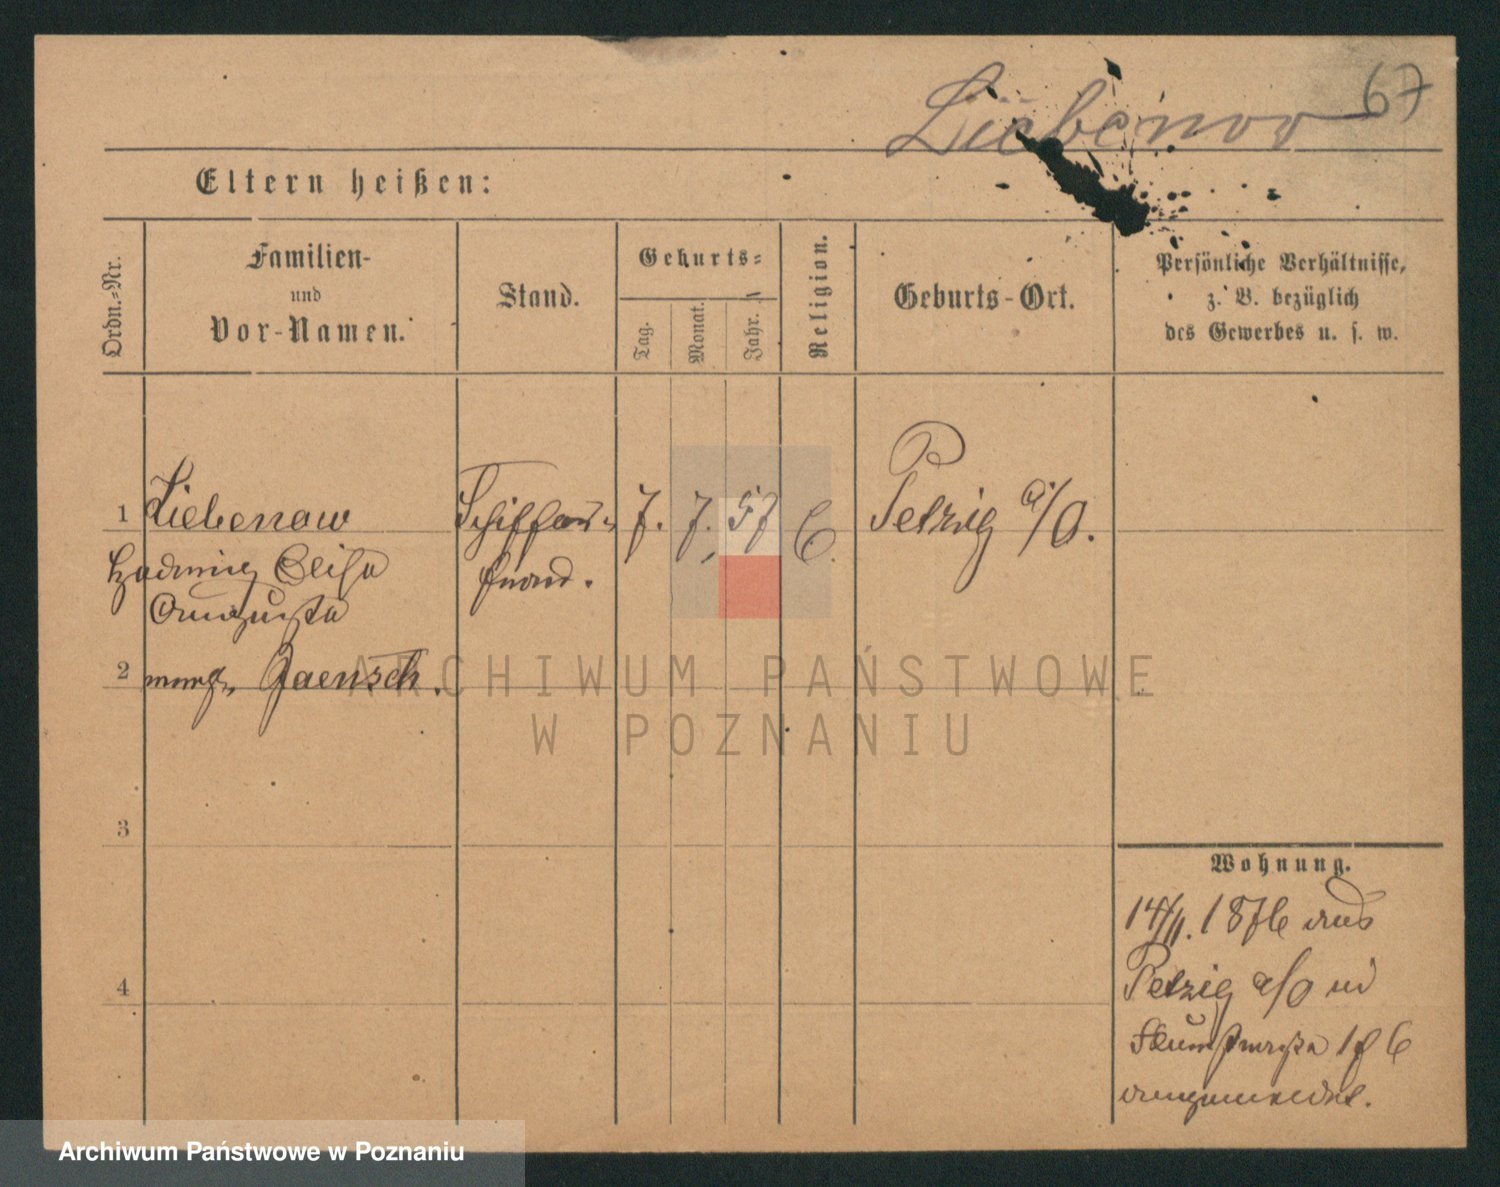 Liebenow
67
Eltern heißen:
Ordn.-Nr.
Familien-
und
Vor-Namen.
Stand.
Geburts-
Tag.
Monat.
Jahr.
Religion.
Geburts-Ort.
Persönliche Verhältnisse,
z. B. bezüglich
des Gewerbes u. s. w.
1 Liebenow Schiffers- 7. 7. 57 E Petzig a/O.
Hedwig Elise frau.
Auguste
2 Jaensch.
3
4
Wohnung.
14/11. 1876 aus
Petzig a/O in
1
angemeldet.
ARCHIWUM PAŃSTWOWE
W POZNANIU
Archiwum Państwowe w Poznaniu